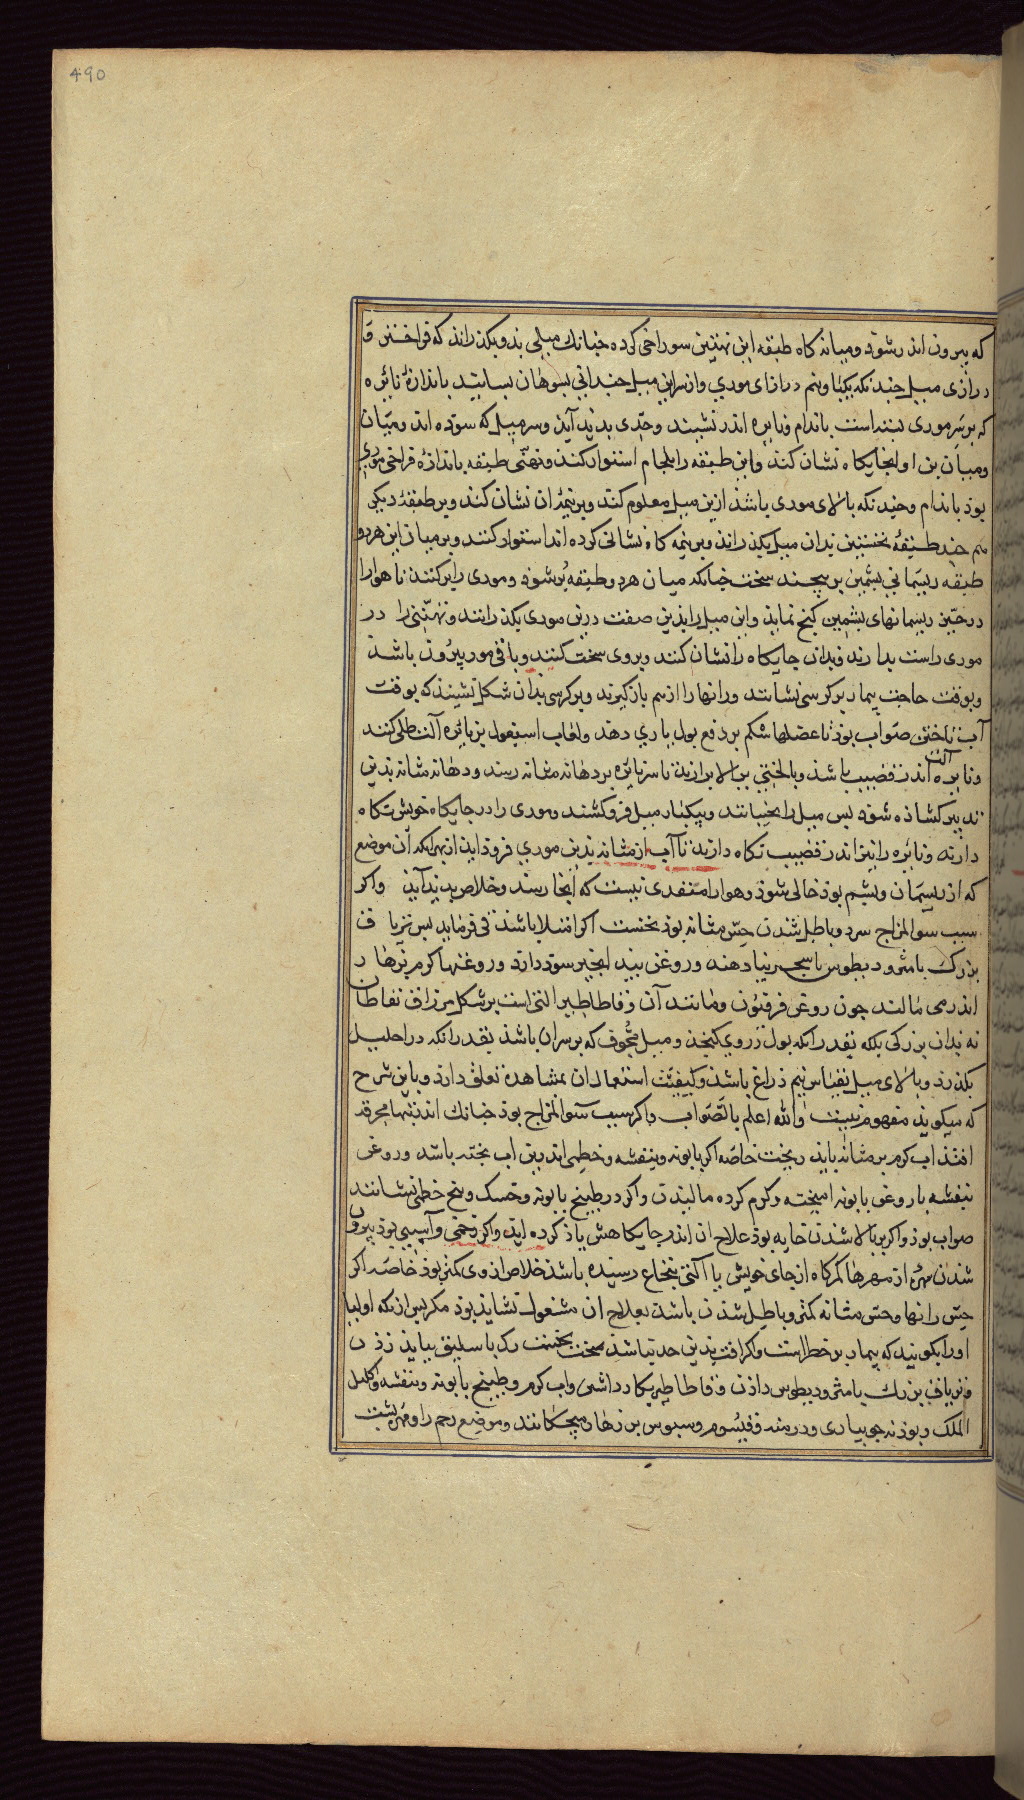 490
که بیرون اندر شود و میانه کاه طبقه این نهنبن سوراخی کرده چنانك میلی بذو بکذراند که فراخنن
درازی میل چندنکه یکتا و نیم درازای موری و از سر این میل چندانی بسوهان بسایند باندازۀ نائزه
که بر سر موری بسته است باندام و نایزه اندر نشیند و حدی بذید آید و سر میل که سوده اند و میان
و میان بن او انجایکاه نشان کند و این طبقه را بلجام استوار کنند و نهنبی طبقه باندازه فراخی موری
بوذ باندام و چندنکه بالای موری باشذ ازین میل معلوم کند و بر نیمۀ ان نشان کند و بر طبقۀ دیکر
هم چند طبقۀ نخستین بدان میل بکذراند و بر نیمه کاه نشانی کرده اند استوار کنند و بر میان این هر دو
طبقه ریسمانی پشمین بر پیچند سخت چنانکه میان هر دو طبقه پُر شود و موری را پر کنند تا هوا را
در حین ریسمانهای پشمین کنج نماند و این میل را بذین صفت درین موری بکذرانند و نهنبن را در
موری راست بدارند و بدان جایکاه را نشان کنند و بروی سخت کنند و باقی مور بیرون باشد
و بوقت حاجت بیمار بر کرسی نشانند و رانها را از هم باز کیرند و بر کرسی بدان شکل نشیند که بوقت
آب تاختن صواب بوذ تا عضلها شکم بر دفع بول یاری دهد و لعاب اسبغول بر نائزه آلت طلی کنند
آلت
و نایزه اندر قضیب باشذ و بالختی ببالا برازند تا سر نائزه بر دهانه مثانه رسد و دهانه مثانه بدین
تدبیر کشاذه شود پس میل را بجنبانند و بیکبار میل فرو کشند و موری را در جایکاه خویش نکاه
دارند و نائزه را نیز اندر قضیب نکاه دارند تا آب از مثانه بدین موری فروذ اید از بهر انکه آن موضع
که از ریسمان و پشم بوذ خالی شوذ و هوا را منفذی نیست که انجا رسد و خلاص بدید آید واکر
سبب سوالمزاج سرد و باطل شدن حس مثانه بوذ نخست اکر امتلا باشذ قی فرماید پس تریاق
بزرك یا مثرودیطوس یا سجرینیا دهند و روغن بید انجیر سود دارد و روغنها کرم بزهار
اندر می مالند چون روغن فرفیون و مانند آن و قاطاطیر التی است بر شکل مزراق نفاطان
نه بدان بزرکی بلکه بقدر انکه بول دروی کنجد و میل مجوف که بر سر ان باشذ بقدر انکه در احلیل
بکذرد و بالای میل بقیاس نیم ذراع باشد و کیفیت استعمال ان بمشاهده تعلق دارد و باین شرح
که میکویند مفهوم نیست والله اعلم بالصواب واکر سبب سوالمزاج بوذ چنانك اندر تبها محرقه
افتد اب کرم بر مثانه باید ریخت خاصه اکر بابونه و بنفشه و خطمی اندرین اب پخته باشد و روغن
بنفشه با روغن بابونه امیخته و کرم کرده مالیدن واکر در طبیخ بابونه و حسک و بیخ خطمی نشانند
صواب بوذ واکر بر بالا شدن خایه بوذ علاج ان اندر جایکاهش یاذ کرده اید واکر زخمی و آسیبی بوذ بیرون
شدن مهره از مهرها کمرکاه از جای خویش یا اکنی بنخاع رسیده باشذ خلاص ازوی کمتر بوذ خاصه اکر
حس رانها و حس مثانه کمتر و باطل شدن باشد بعلاج ان مشغول نشاید بوذ مکر پس از نکه اولیا
او را بکویند که بیمار بر خطر است واکر افت بدین حد نباشذ نخست رک باسلیق بباید زدن
و تریاق بزرك یا مثرودیطوس دادن و قاطاطیر بکار داشتن و اب کرم و طبیخ بابونه و بنفشه و اکلیل
الملک و بوذنه جویباری و درمنه و قیسوم و سبوس بر زهار میچکانند و موضع رحم را و مهره پشت